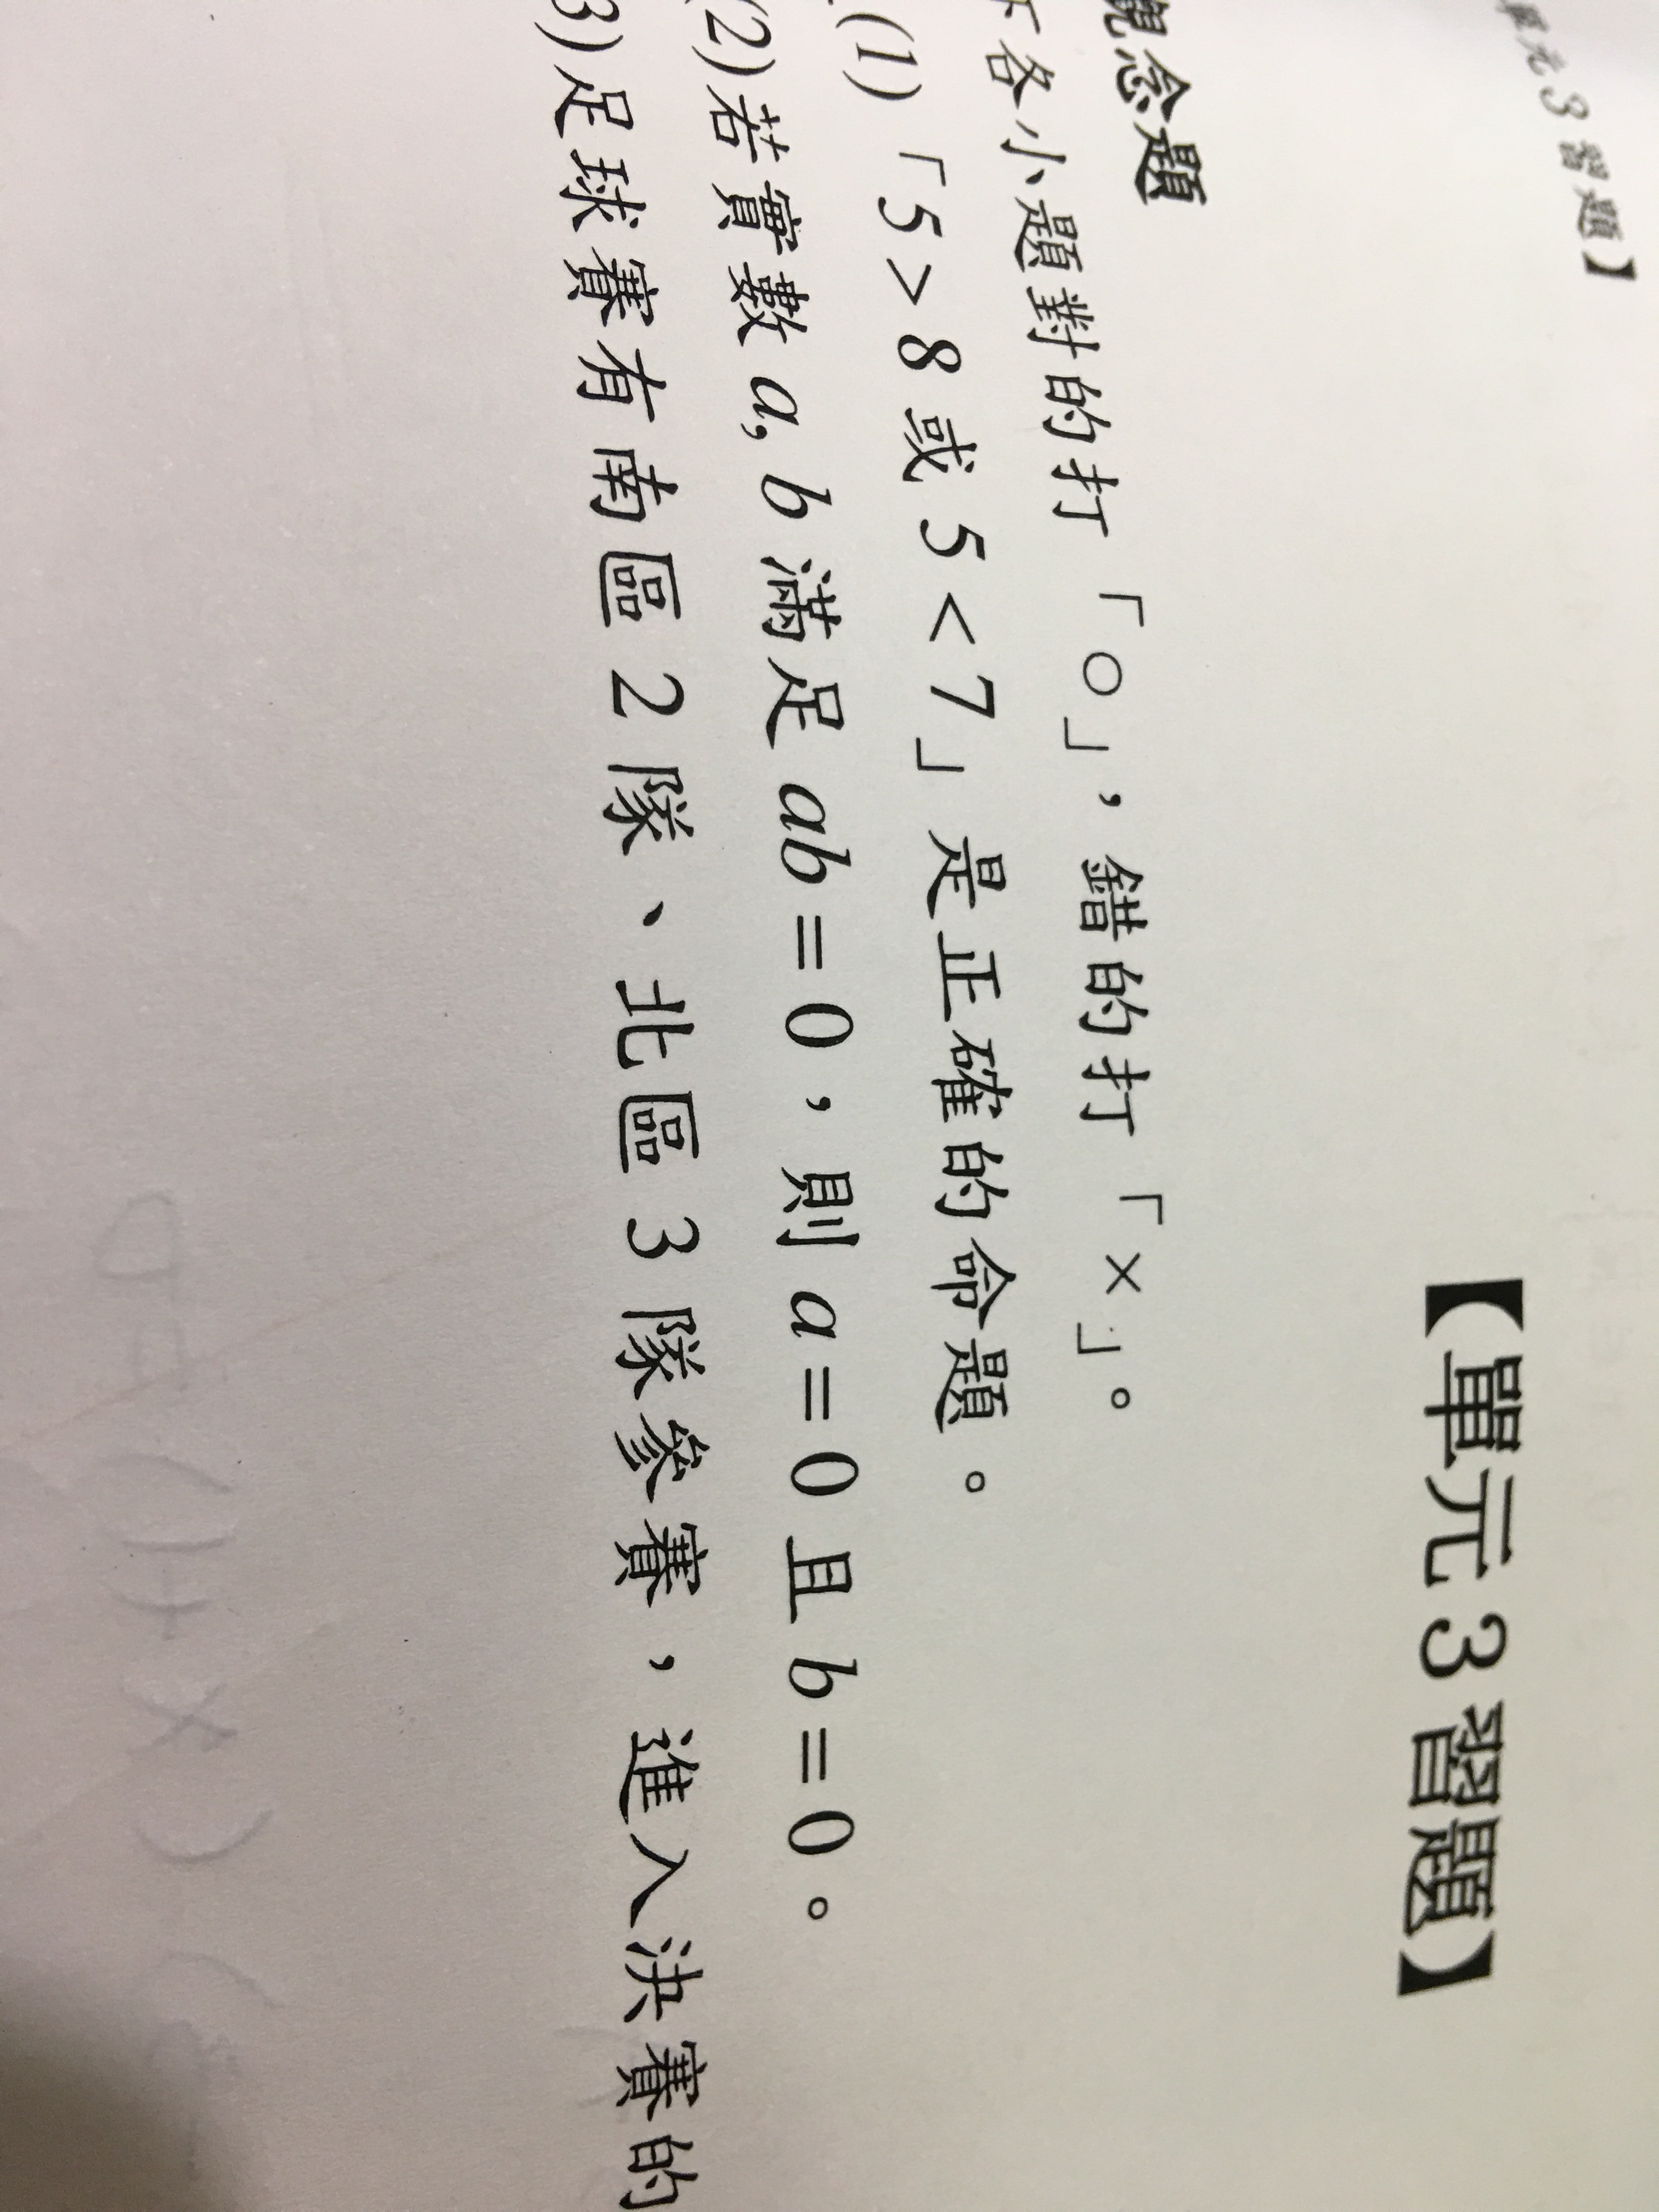 單元3習題】
【單元3習題】
觀念題
下各小題對的打「○」，錯的打「×」。
(1)「5>8或5<7」是正確的命題。
(2)若實數a, b滿足ab=0，則a=0且b=0。
3)足球賽有南區2隊、北區3隊參賽，進入決賽的